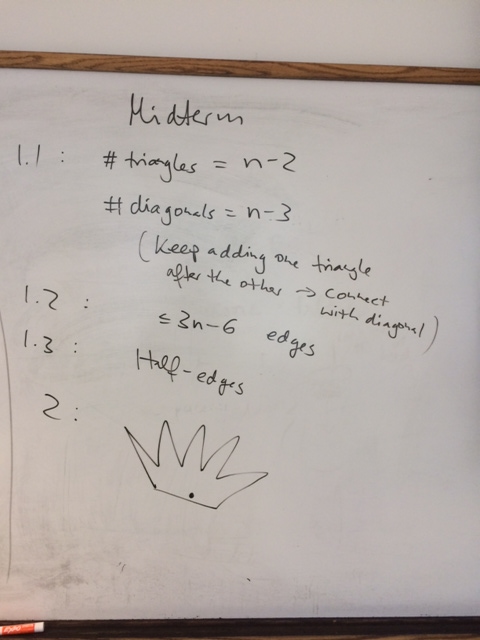 Midterm
1.1 : # triangles = n-2
# diagonals = n-3
(Keep adding one triangle
after the other → connect
with diagonal)
1.2 : ≤ 3n-6 edges
1.3 : Half-edges
2 :